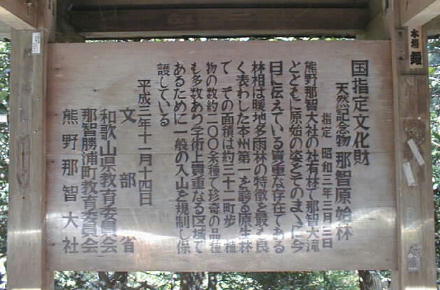 国指定文化財
天然記念物 那智原始林
指定 昭和三年三月三日
熊野那智大社の社有林で那智大滝
とともに原始の姿をそのまゝに今
日に伝えている貴重な存在である
林相は暖地多雨林の特徴を最も良
く表わした本州第一を誇る原生林
で その面積は約三十二町歩 植
物の数約二〇〇余種で珍奇の品種
も多数あり学術上貴重なる区域で
あるために一般の入山を規制し保
護している
平成二年十一月十四日
文部省
和歌山県教育委員会
那智勝浦町教育委員会
熊野那智大社